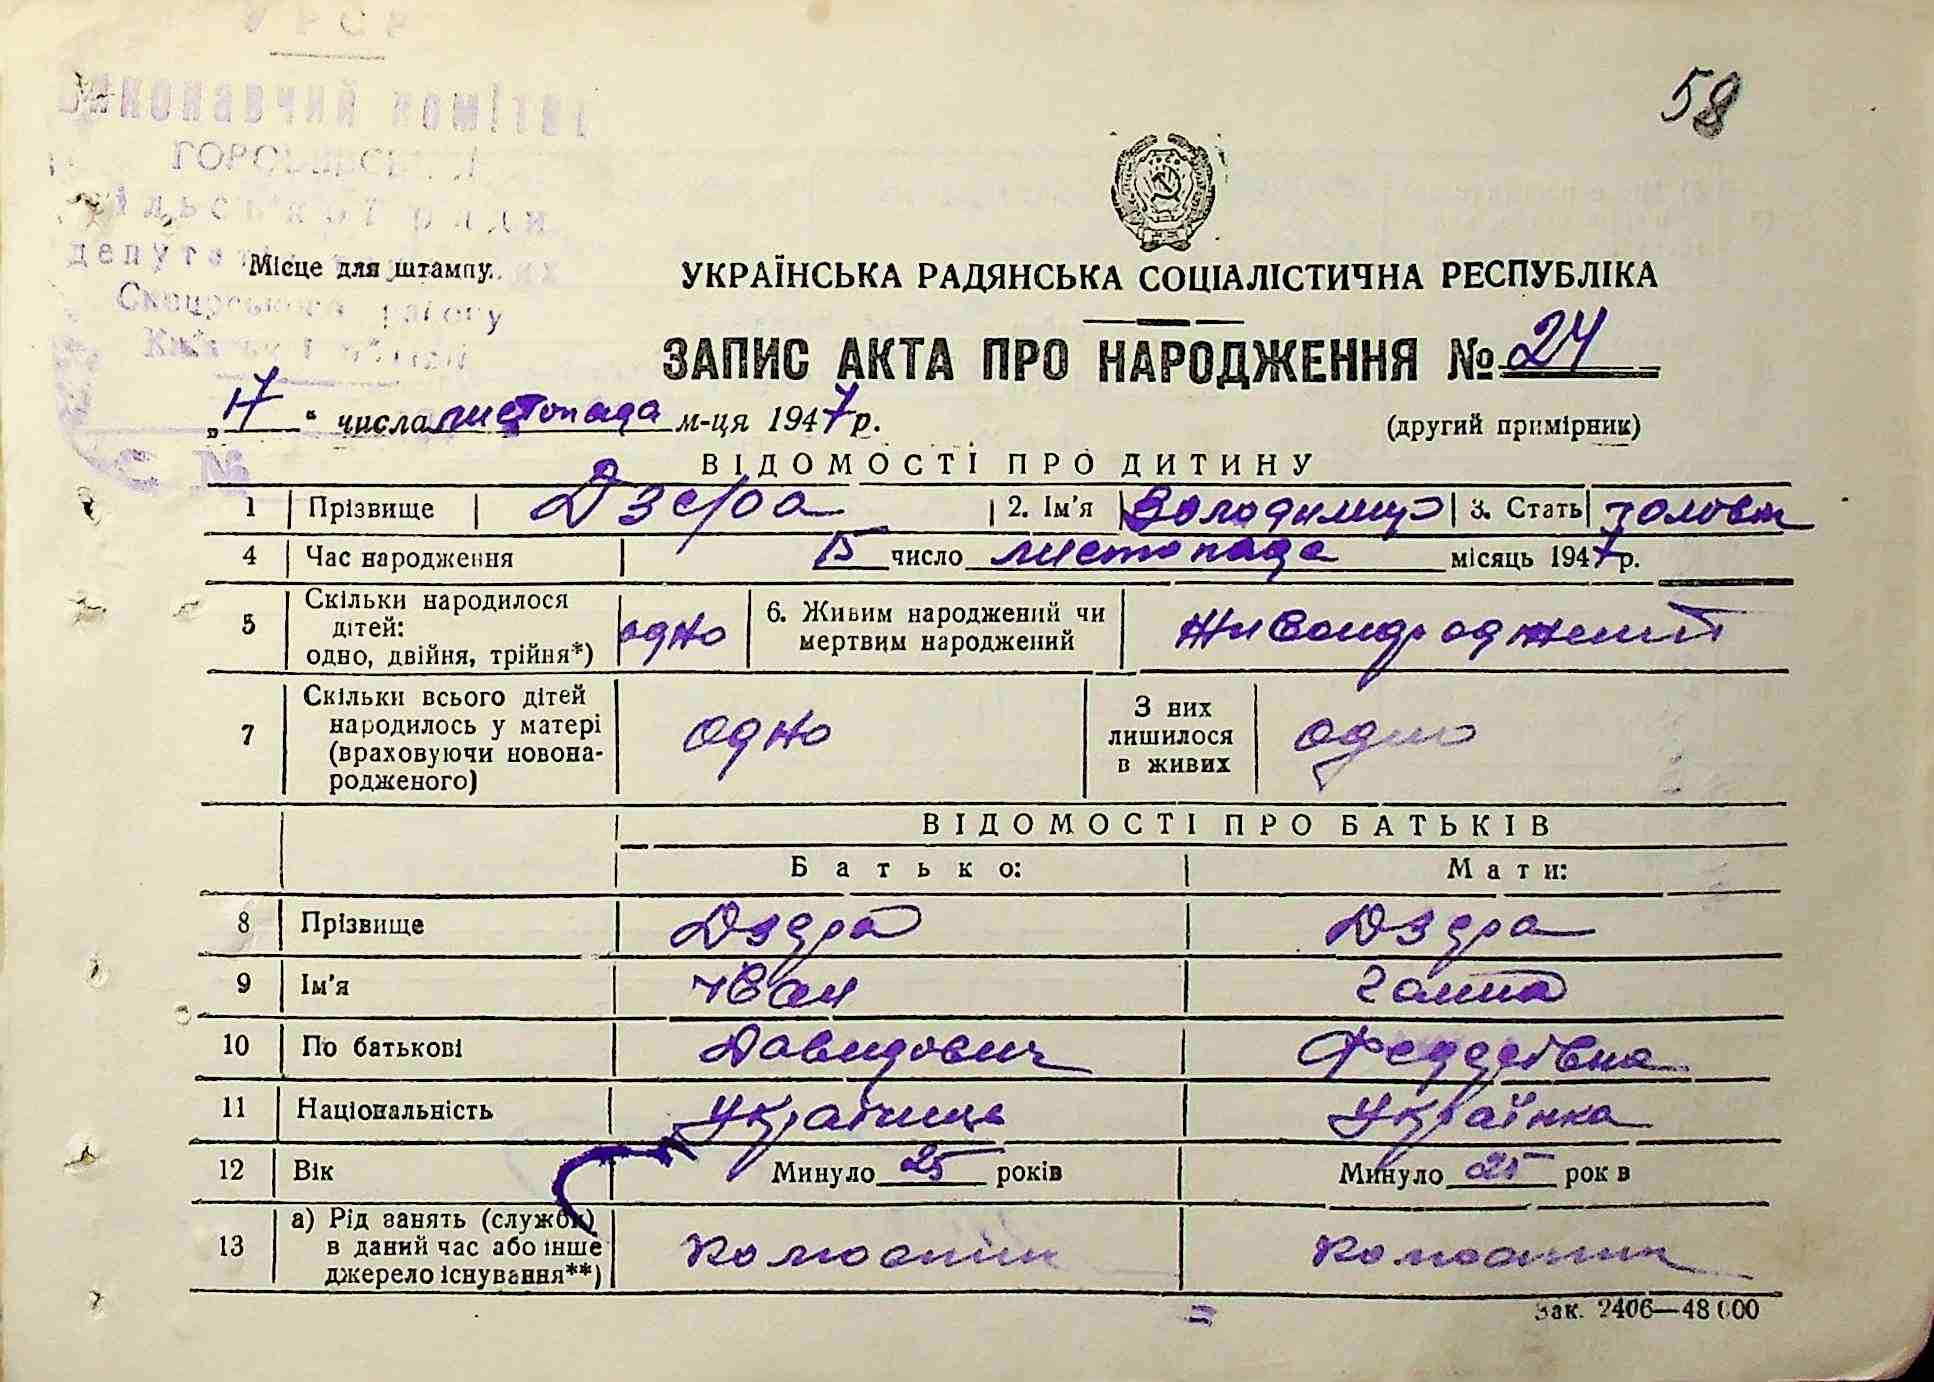 УРСР
58
Виконавчий комітет
сільської ради
депутатів
Місце для штампу.
УКРАЇНСЬКА РАДЯНСЬКА СОЦІАЛІСТИЧНА РЕСПУБЛІКА
району
ЗАПИС АКТА ПРО НАРОДЖЕННЯ № 24
„17“ числа листопада м-ця 1947 р.
(другий примірник)
ВІДОМОСТІ ПРО ДИТИНУ
1 Прізвище Дзюра 2. Ім'я Володимир 3. Стать чолов
4 Час народження 15 число листопада місяць 1947 р.
5 Скільки народилося дітей: одно, двійня, трійня*) одно 6. Живим народжений чи мертвим народжений Живонароджений
7 Скільки всього дітей народилось у матері (враховуючи новонародженого) одно З них лишилося в живих одно
ВІДОМОСТІ ПРО БАТЬКІВ
Батько: Мати:
8 Прізвище
9 Ім'я Іван Галина
10 По батькові Давидович
11 Національність Українець Українка
12 Вік Минуло 25 років Минуло 25 рок в
13 а) Рід занять (служби) в даний час або інше джерело існування**)
Зак. 2406—48 000